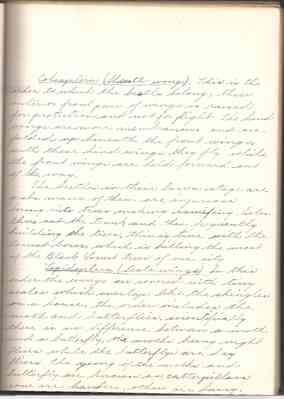 Coleoptera (Sheath wings). This is the
order to which the beetle belong, their
anterior front pair of wings is raised
for protection and not for flight. The hind
wings are more membranous and are
folded up beneath the front wings
with these hind wings they fly while
the front wings are held forward out
of the way.
The beetles in their larva stage are
grubs many of them are injurious
trees making
the trunk and then frequently
the tree, this is true with the
Locust borer which is killing the most
of the Black Locust trees of our city.
Lepidoptera (scale wings). In this
order the wings are covered with tiny
scales which overlap like the shingles
on a house, the order includes the
moth and butterflies, scientifically
there is no difference between a moth
and a butterfly, the moths being night
fliers while the butterflys are day
fliers. The young of the moths and
butterfly are known as caterpillars
some are harmless, others are